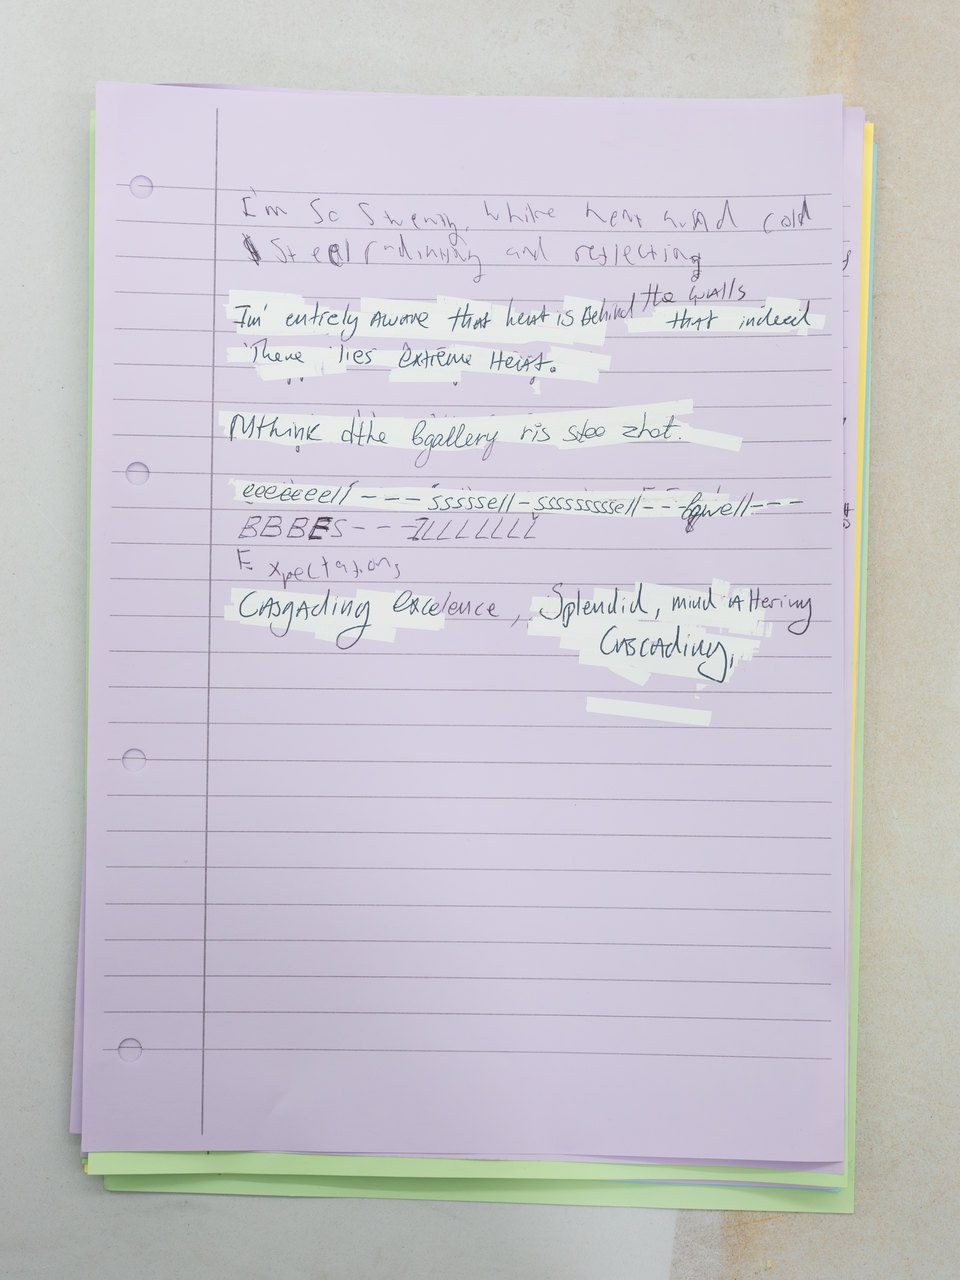 I'm So Sweaty, white heat and cold
Steel radiating and reflecting
Im' entirely AWARE that heat is Behind the walls that indeed
There lies extreme Heat.
Mthink dthe bgallery ris stoo zhot.
eeeeeeell --- ssssssell - ssssssssssell --- bqwell ---
BBBES --- ILLLLLL
Expectations
CASgading excelence, Splendid, mind Altering
CASCAding,